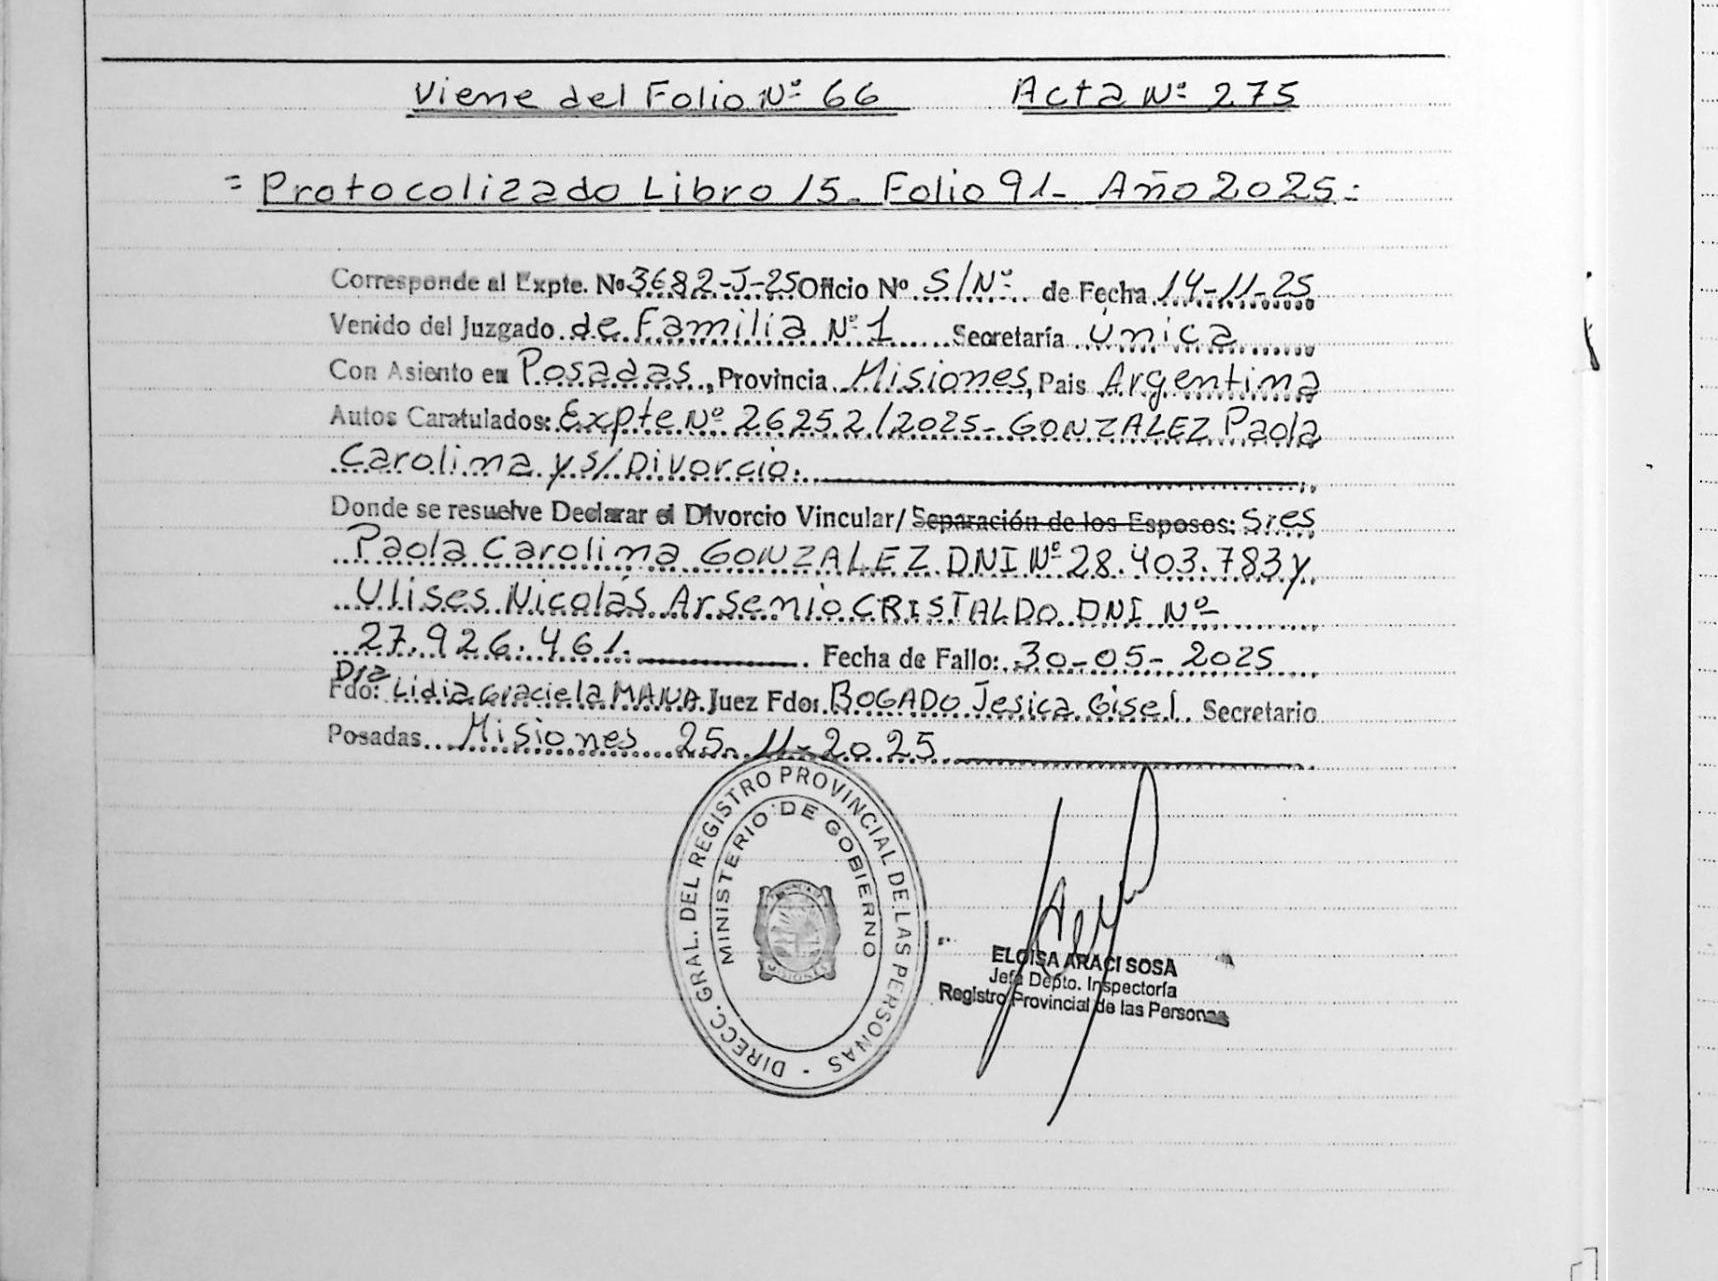 Viene del Folio Nº 66 Acta Nº 275
= Protocolizado Libro 15_ Folio 91_ Año 2025 =
Corresponde al Expte. Nº 3682-J-25 Oficio Nº S/Nº de Fecha 14-11-25
Venido del Juzgado de Familia Nº 1 Secretaría Única
Con Asiento en Posadas, Provincia Misiones, Pais Argentina
Autos Caratulados: Expte Nº 26252/2025_ GONZALEZ Paola
Carolina y s/Divorcio.
Donde se resuelve Declarar el Divorcio Vincular/ Separación de los Esposos: Sres
Paola Carolina GONZALEZ DNI Nº 28.403.783 y
Ulises Nicolás Arsenio CRISTALDO DNI Nº
27.926.461. Fecha de Fallo: 30-05-2025
Dra
Fdo: Lidia Graciela Juez Fdo: BOGADO Jesica Gisel Secretario
Posadas Misiones 25-11-2025
DIRECC. GRAL. DEL REGISTRO PROVINCIAL DE LAS PERSONAS -
MINISTERIO DE GOBIERNO
MISIONES
ELOISA ARACI SOSA
Jefa Depto. Inspectoría
Registro Provincial de las Personas